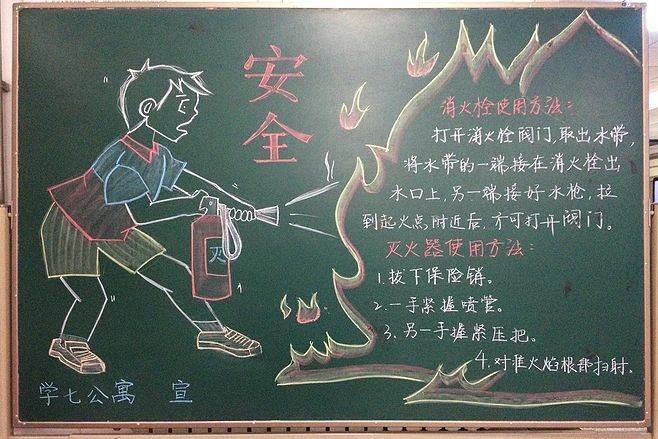 安全
消火栓使用方法：
打开消火栓阀门，取出水带，
将水带的一端接在消火栓出
水口上，另一端接好水枪，拉
到起火点附近后，方可打开阀门。
灭火器使用方法：
1.拔下保险销。
2.一手紧握喷管。
3、另一手握紧压把。
4.对准火焰根部扫射。
灭
学七公寓 宣